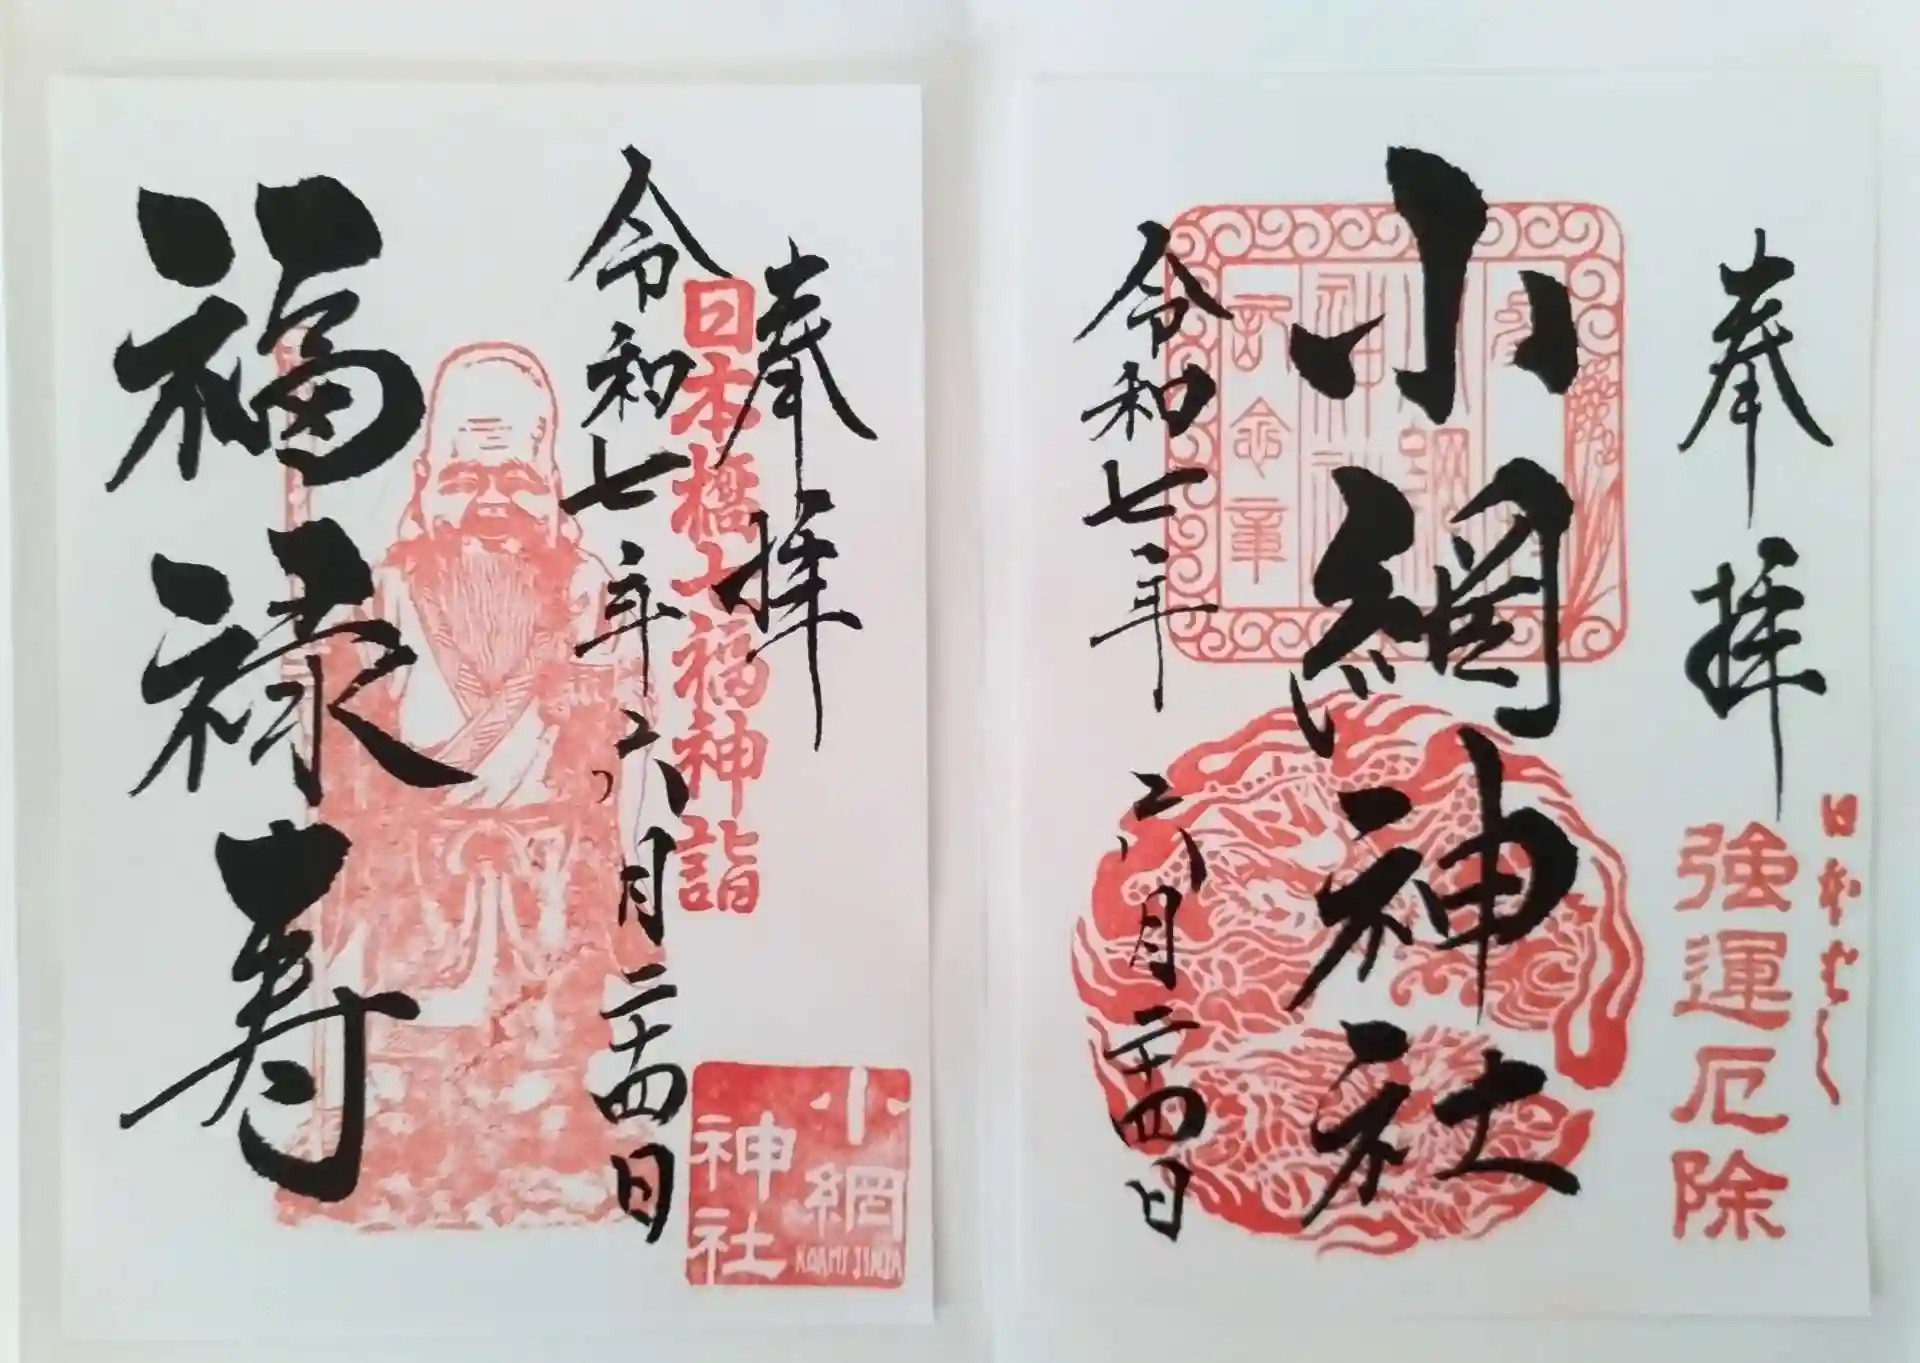 奉拝
日本ばし
強運厄除
小網神社
小網
神社
記念章
令和七年六月二十四日
奉拝
日本橋七福神詣
令和七年六月二十四日
福禄寿
小網
神社
KOAMI JINJA